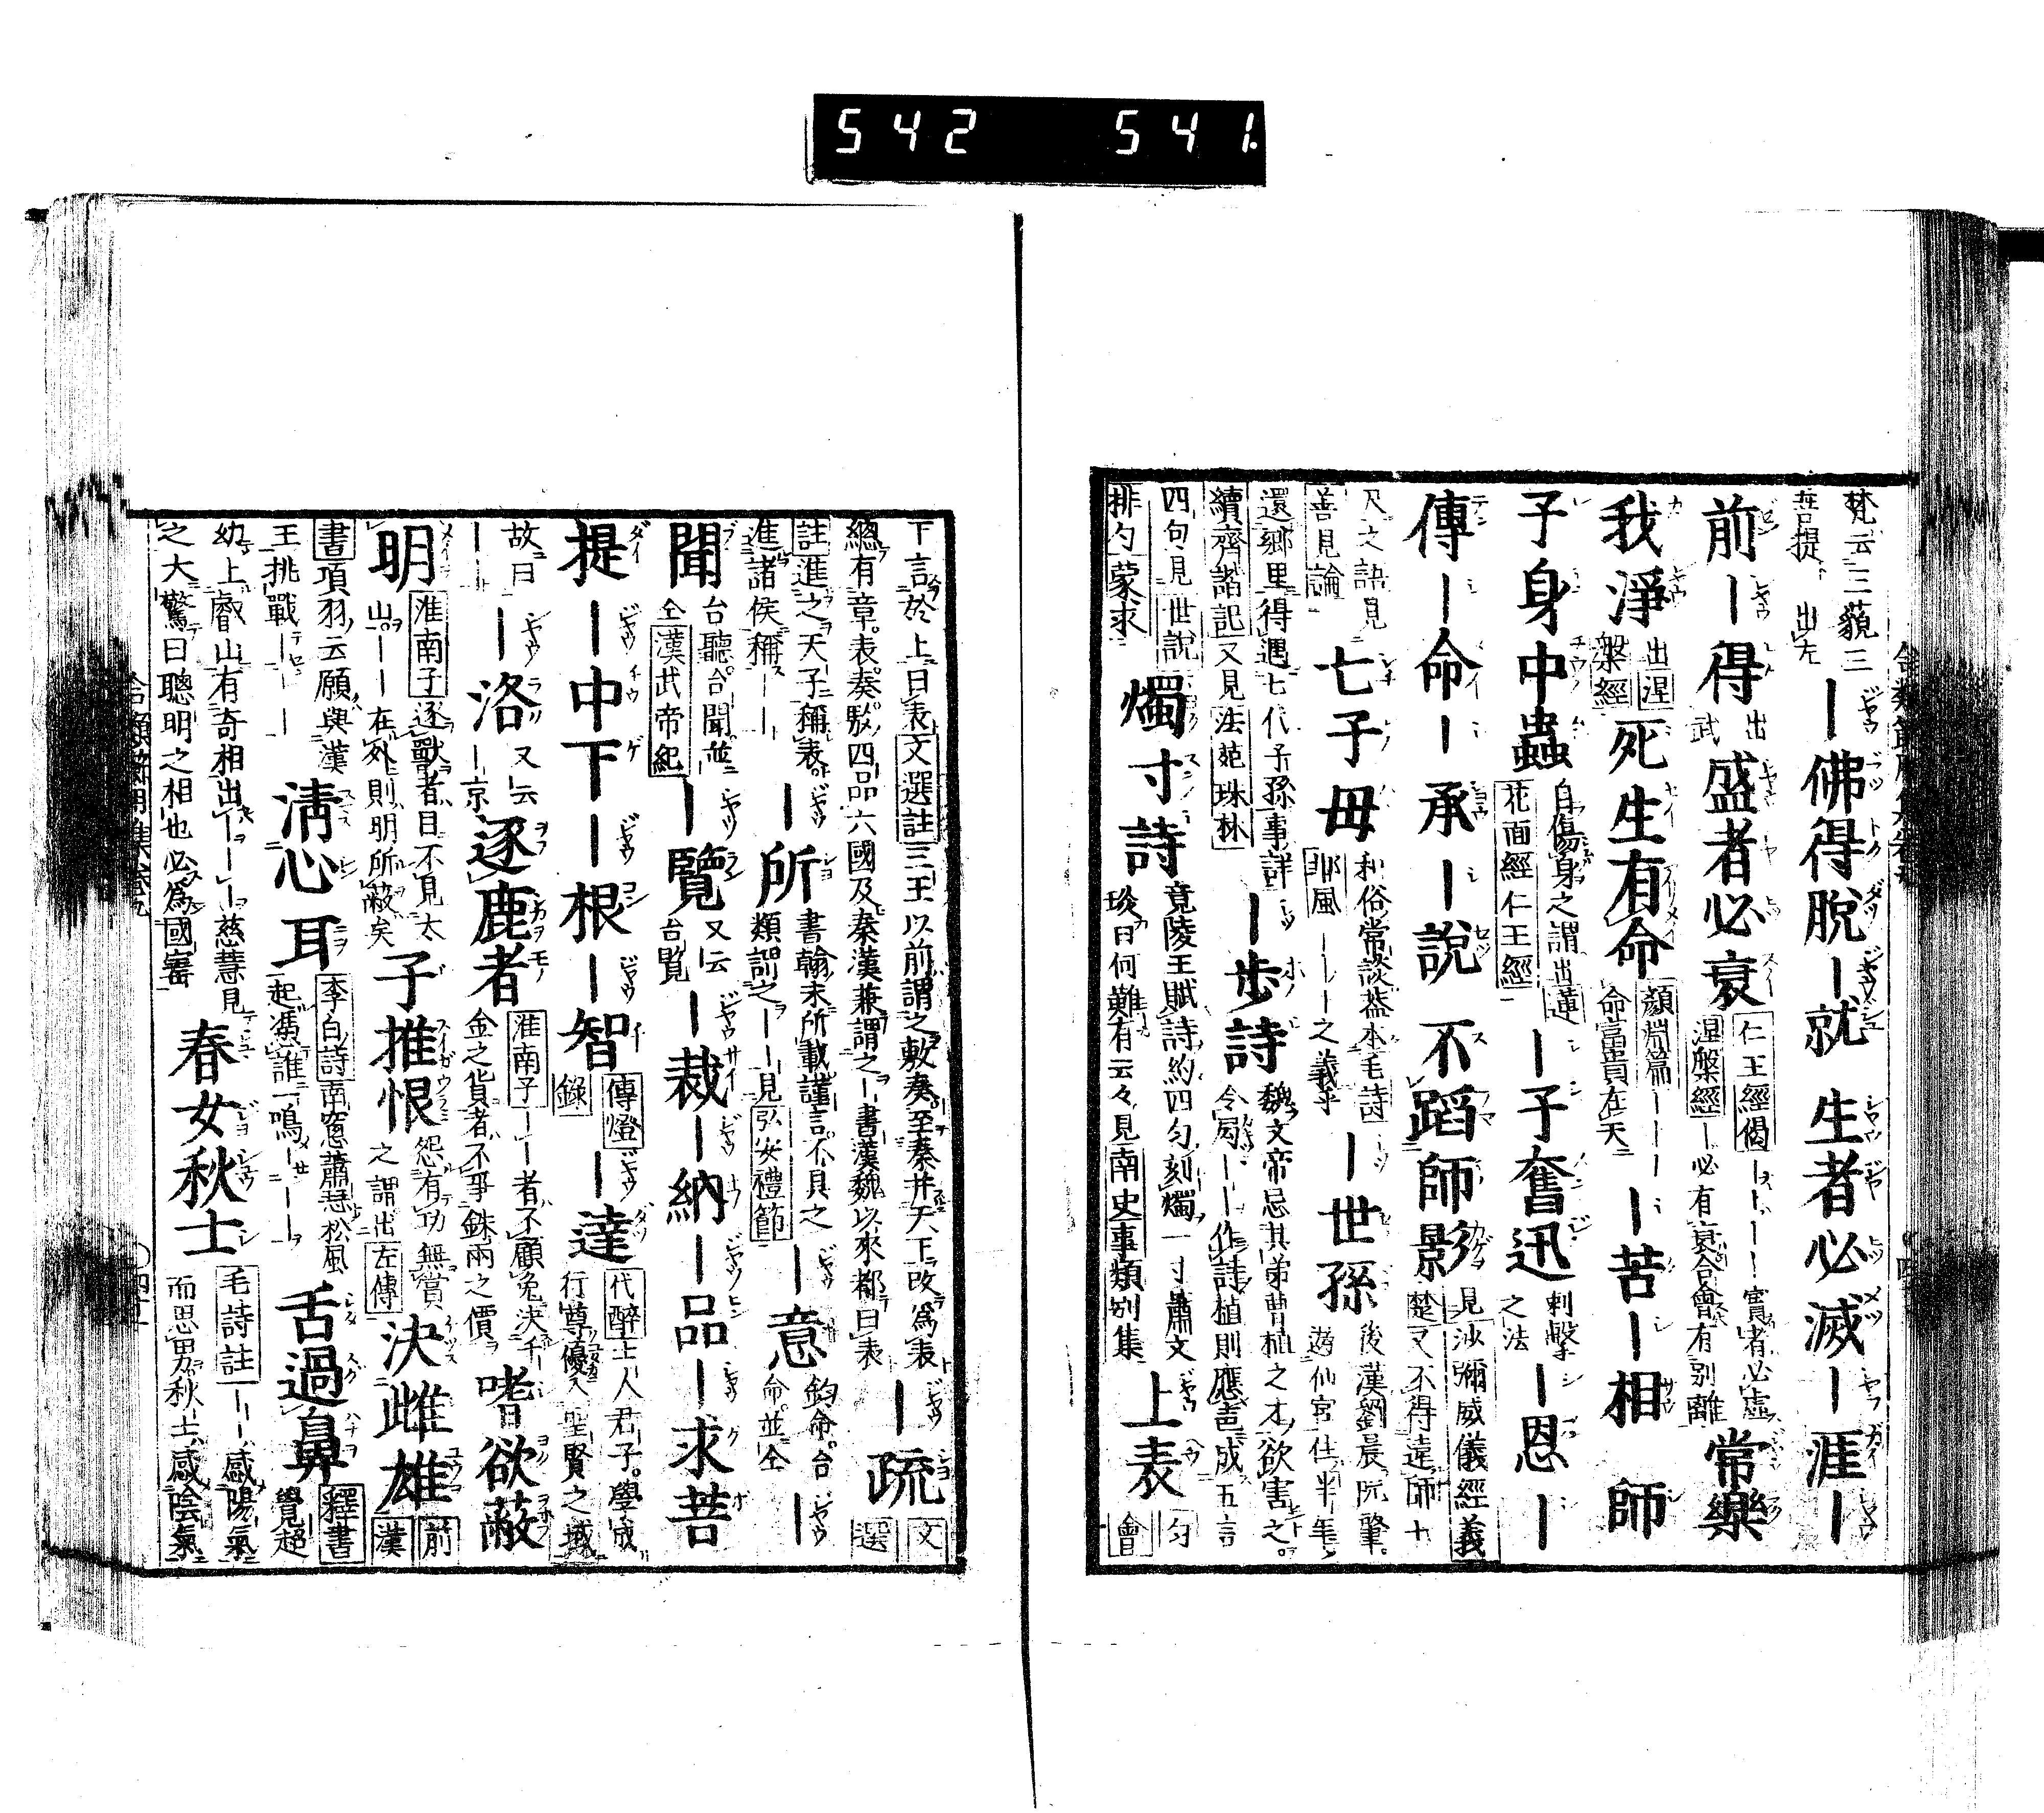 542 541
梵云三藐三
菩提 出左
―佛得脱―就 生者必滅―涯―
前―得 出武 盛者必衰 仁王經偈――――實者必虚 涅槃經―必有衰合會有別離 常樂
我淨 出涅槃經 死生有命 顔淵篇――――命富貴在天 ―苦―相 師
子身中蟲 自傷身之謂出蓮花面經仁王經 ―子奮迅 刺擊之法 ―恩―
傳―命―承―説 不蹈師影 見沙彌威儀經義楚又不得遠師十
尺之語見善見論 七子母 和俗常談蓋本毛詩邶風―――之義乎 ―世孫 後漢劉晨阮肇遊仙宮住半年
還郷里得遇七代子孫事詳
續齊諧記又見法苑珠林 ―歩詩 魏文帝忌其弟曹植之才欲害之令局――作詩植則應声成五言
四句見世説
排匀蒙求 燭寸詩 竟陵王賦詩約四匀刻燭一寸蕭文琰曰何難有云々見南史事類別集 上表 匀會
下言於上曰表文選註三王以前謂之敷奏至秦并天下改爲表
總有章表奏駁四品六國及秦漢兼謂之―書漢魏以來都曰表 ―疏 文選
註進之天子稱表
進諸侯稱―― ―所 書翰末所載謹言不具之類謂之――見弘安禮節 ―意 鈞命台命並仝 ―
聞 台聽台聞並仝漢武帝紀 ―覽 又云台覽 ―裁―納―品―求菩
提―中下―根―智 傳燈錄 ―達 代醉上人君子學成行尊優入聖賢之域
故曰―― ―洛 又云―京 逐鹿者 淮南子――者不顧兔決千金之貨者不爭銖兩之價 嗜欲蔽
明 淮南子逐獸者目不見太山――在外則明所蔽矣 子推恨 怨有功無賞之謂出左傳 決雌雄 前漢
書項羽云願與漢
王挑戰――― 淸心耳 李白詩南窓蕭瑟松風起憑誰一鳴――― 舌過鼻 釋書覺超
幼上叡山有奇相出―――慈慧見
之大驚曰聰明之相也必爲國審 春女秋士 毛詩註――感陽氣而思男秋士感陰氣